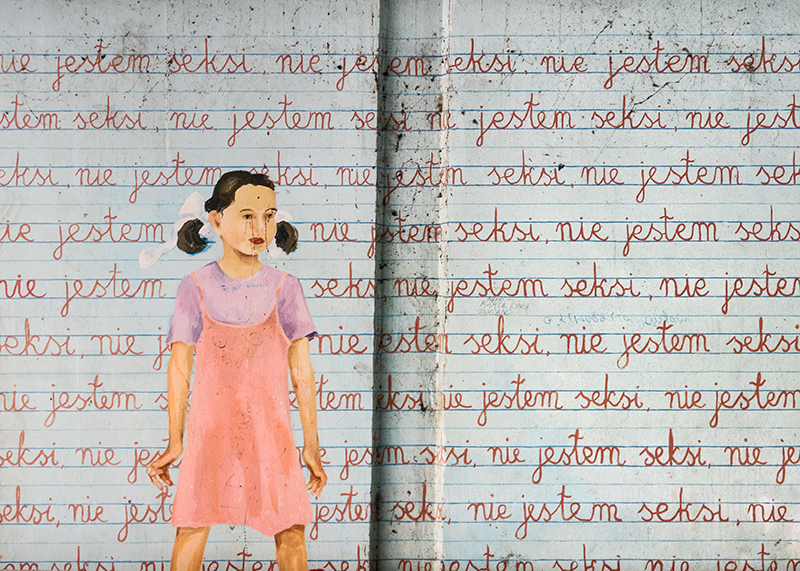 nie jestem seksi, nie jestem seksi, nie jestem seksi
stem seksi, nie jestem seksi, nie jestem seksi, nie jest
seksi, nie jestem seksi, nie jestem seksi, nie jestem sek
nie jestem nie jestem seksi, nie jestem
nie jestem seksi, nie jestem seksi, nie jestem
seksi, nie nie jestem seksi, nie jestem seksi,
nie jestem s tem seksi, nie jestem seksi, nie jestem
seksi, nie je e jestem seksi, nie jestem seksi, nie
seksi, nie jest jestem seksi, nie jestem seksi, nie